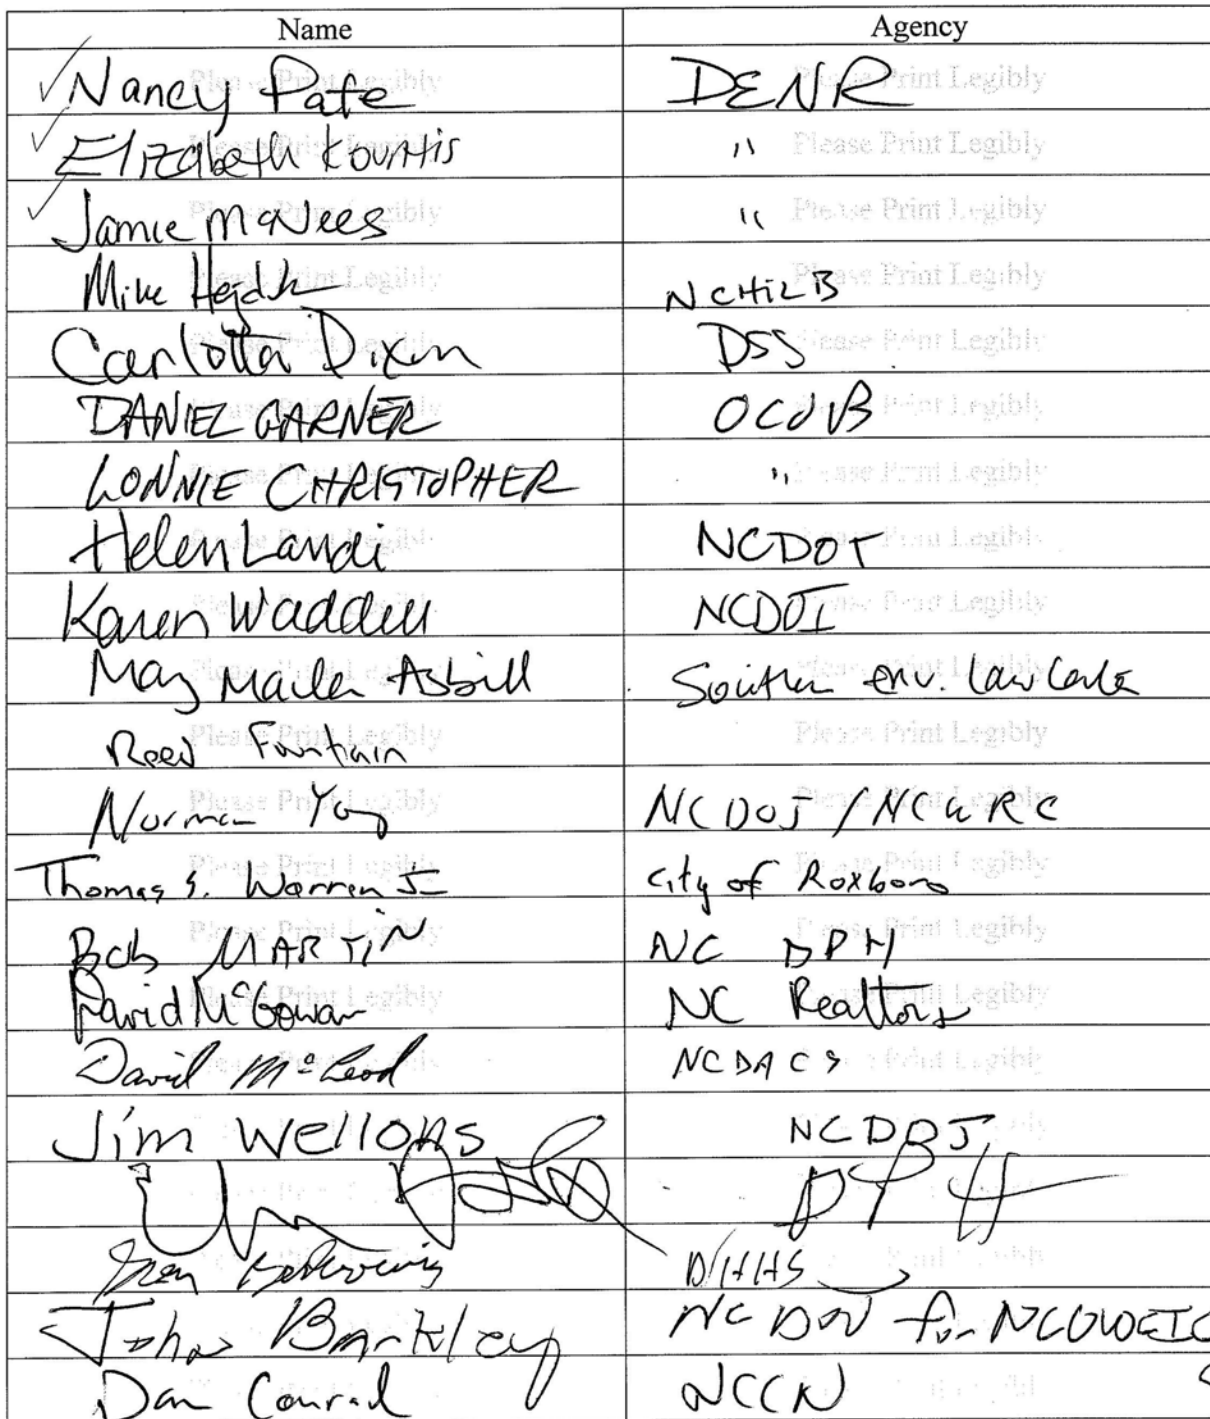 Name Agency
Nancy Pate DENR
Elizabeth Kountis "
Jamie McNees "
Mike Hejduk NCHILB
Carlotta Dixon DSS
DANIEL GARNER OCJB
LONNIE CHRISTOPHER "
Helen Landi NCDOT
Karen Waddell NCDOI
May Asbill Southern env. Law Center
Reed Fountain
Norman Young NCDOJ / NCWRC
Thomas S. Warren Jr City of Roxboro
Bob MARTIN NC DPH
David McGowan NC Realtors
David McLeod NCDACS
Jim Wellons NCDOJ
DPH
DHHS
John Barkley NC DOJ for
Dan Conrad NCCN
Please Print Legibly